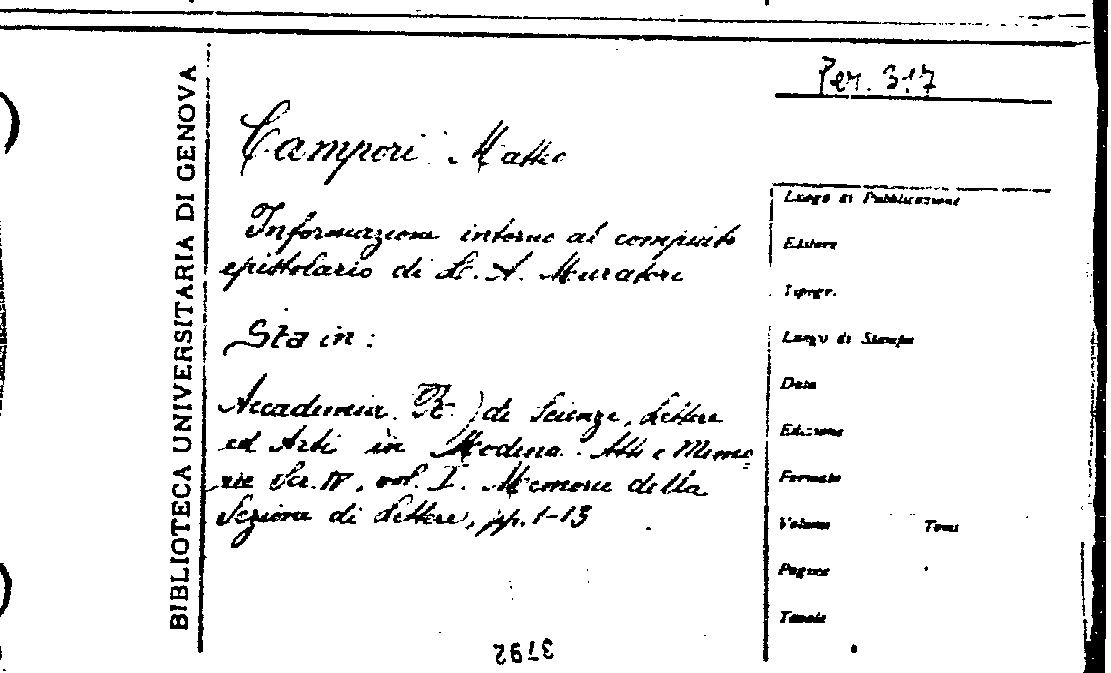 BIBLIOTECA UNIVERSITARIA DI GENOVA
Per. 317
Campori Matteo
Informazione intorno al compiuto
epistolario di L. A. Muratori
Sta in:
Accademia (R.) di Scienze, Lettere
ed Arti in Modena. Atti e Memo=
rie Ser. IV, vol. I. Memorie della
Sezione di Lettere, pp. 1-13
3792
Luogo di Pubblicazione
Editore
Tipogr.
Luogo di Stampa
Data
Edizione
Formato
Volume Tomi
Pagine
Tavole